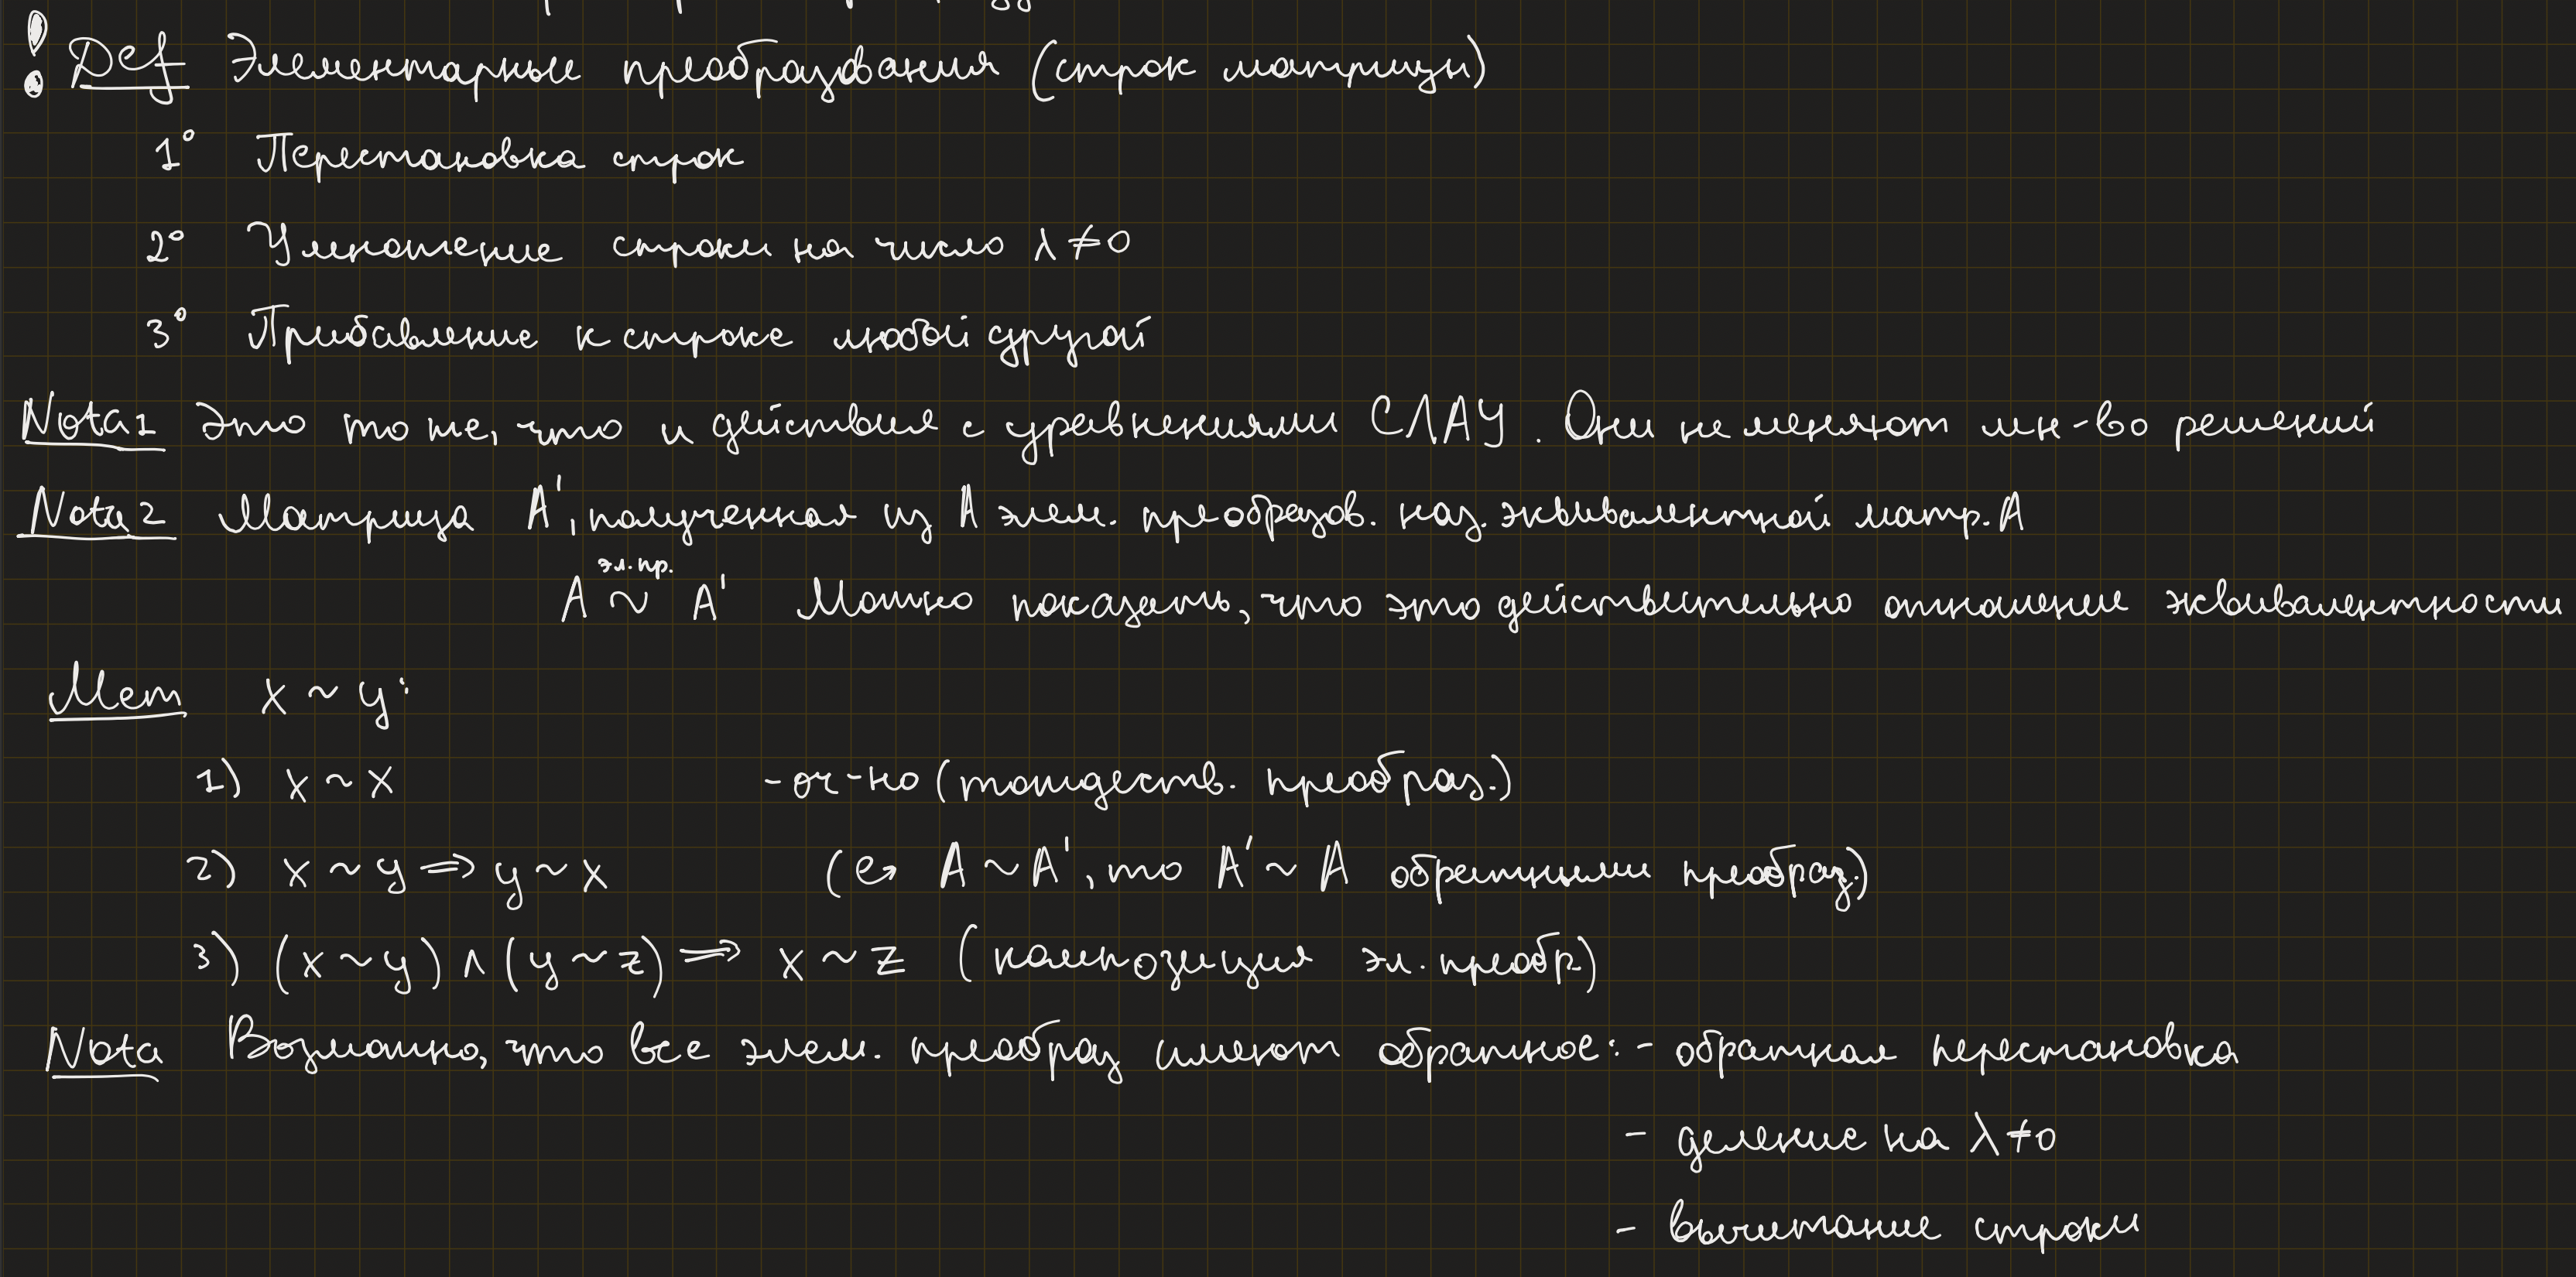 ! Def Элементарные преобразования (строк матрицы)
1° Перестановка строк
2° Умножение строки на число λ ≠ 0
3° Прибавление к строке любой другой
Nota1 Это то же, что и действия с уравнениями СЛАУ. Они не меняют мн-во решений
Nota2 Матрица A', полученная из A элем. преобразов. наз. эквивалентной матр. A
эл.пр.
A ~ A' Можно показать, что это действительно отношение эквивалентности
Mem x ~ y:
1) x ~ x - оч-но (тождеств. преобраз.)
2) x ~ y ⟹ y ~ x ( A ~ A', то A' ~ A обратными преобраз.)
3) (x ~ y) ∧ (y ~ z) ⟹ x ~ z (композиция эл. преобр.)
Nota Возможно, что все элем. преобраз имеют обратное: - обратная перестановка
- деление на λ ≠ 0
- вычитание строки